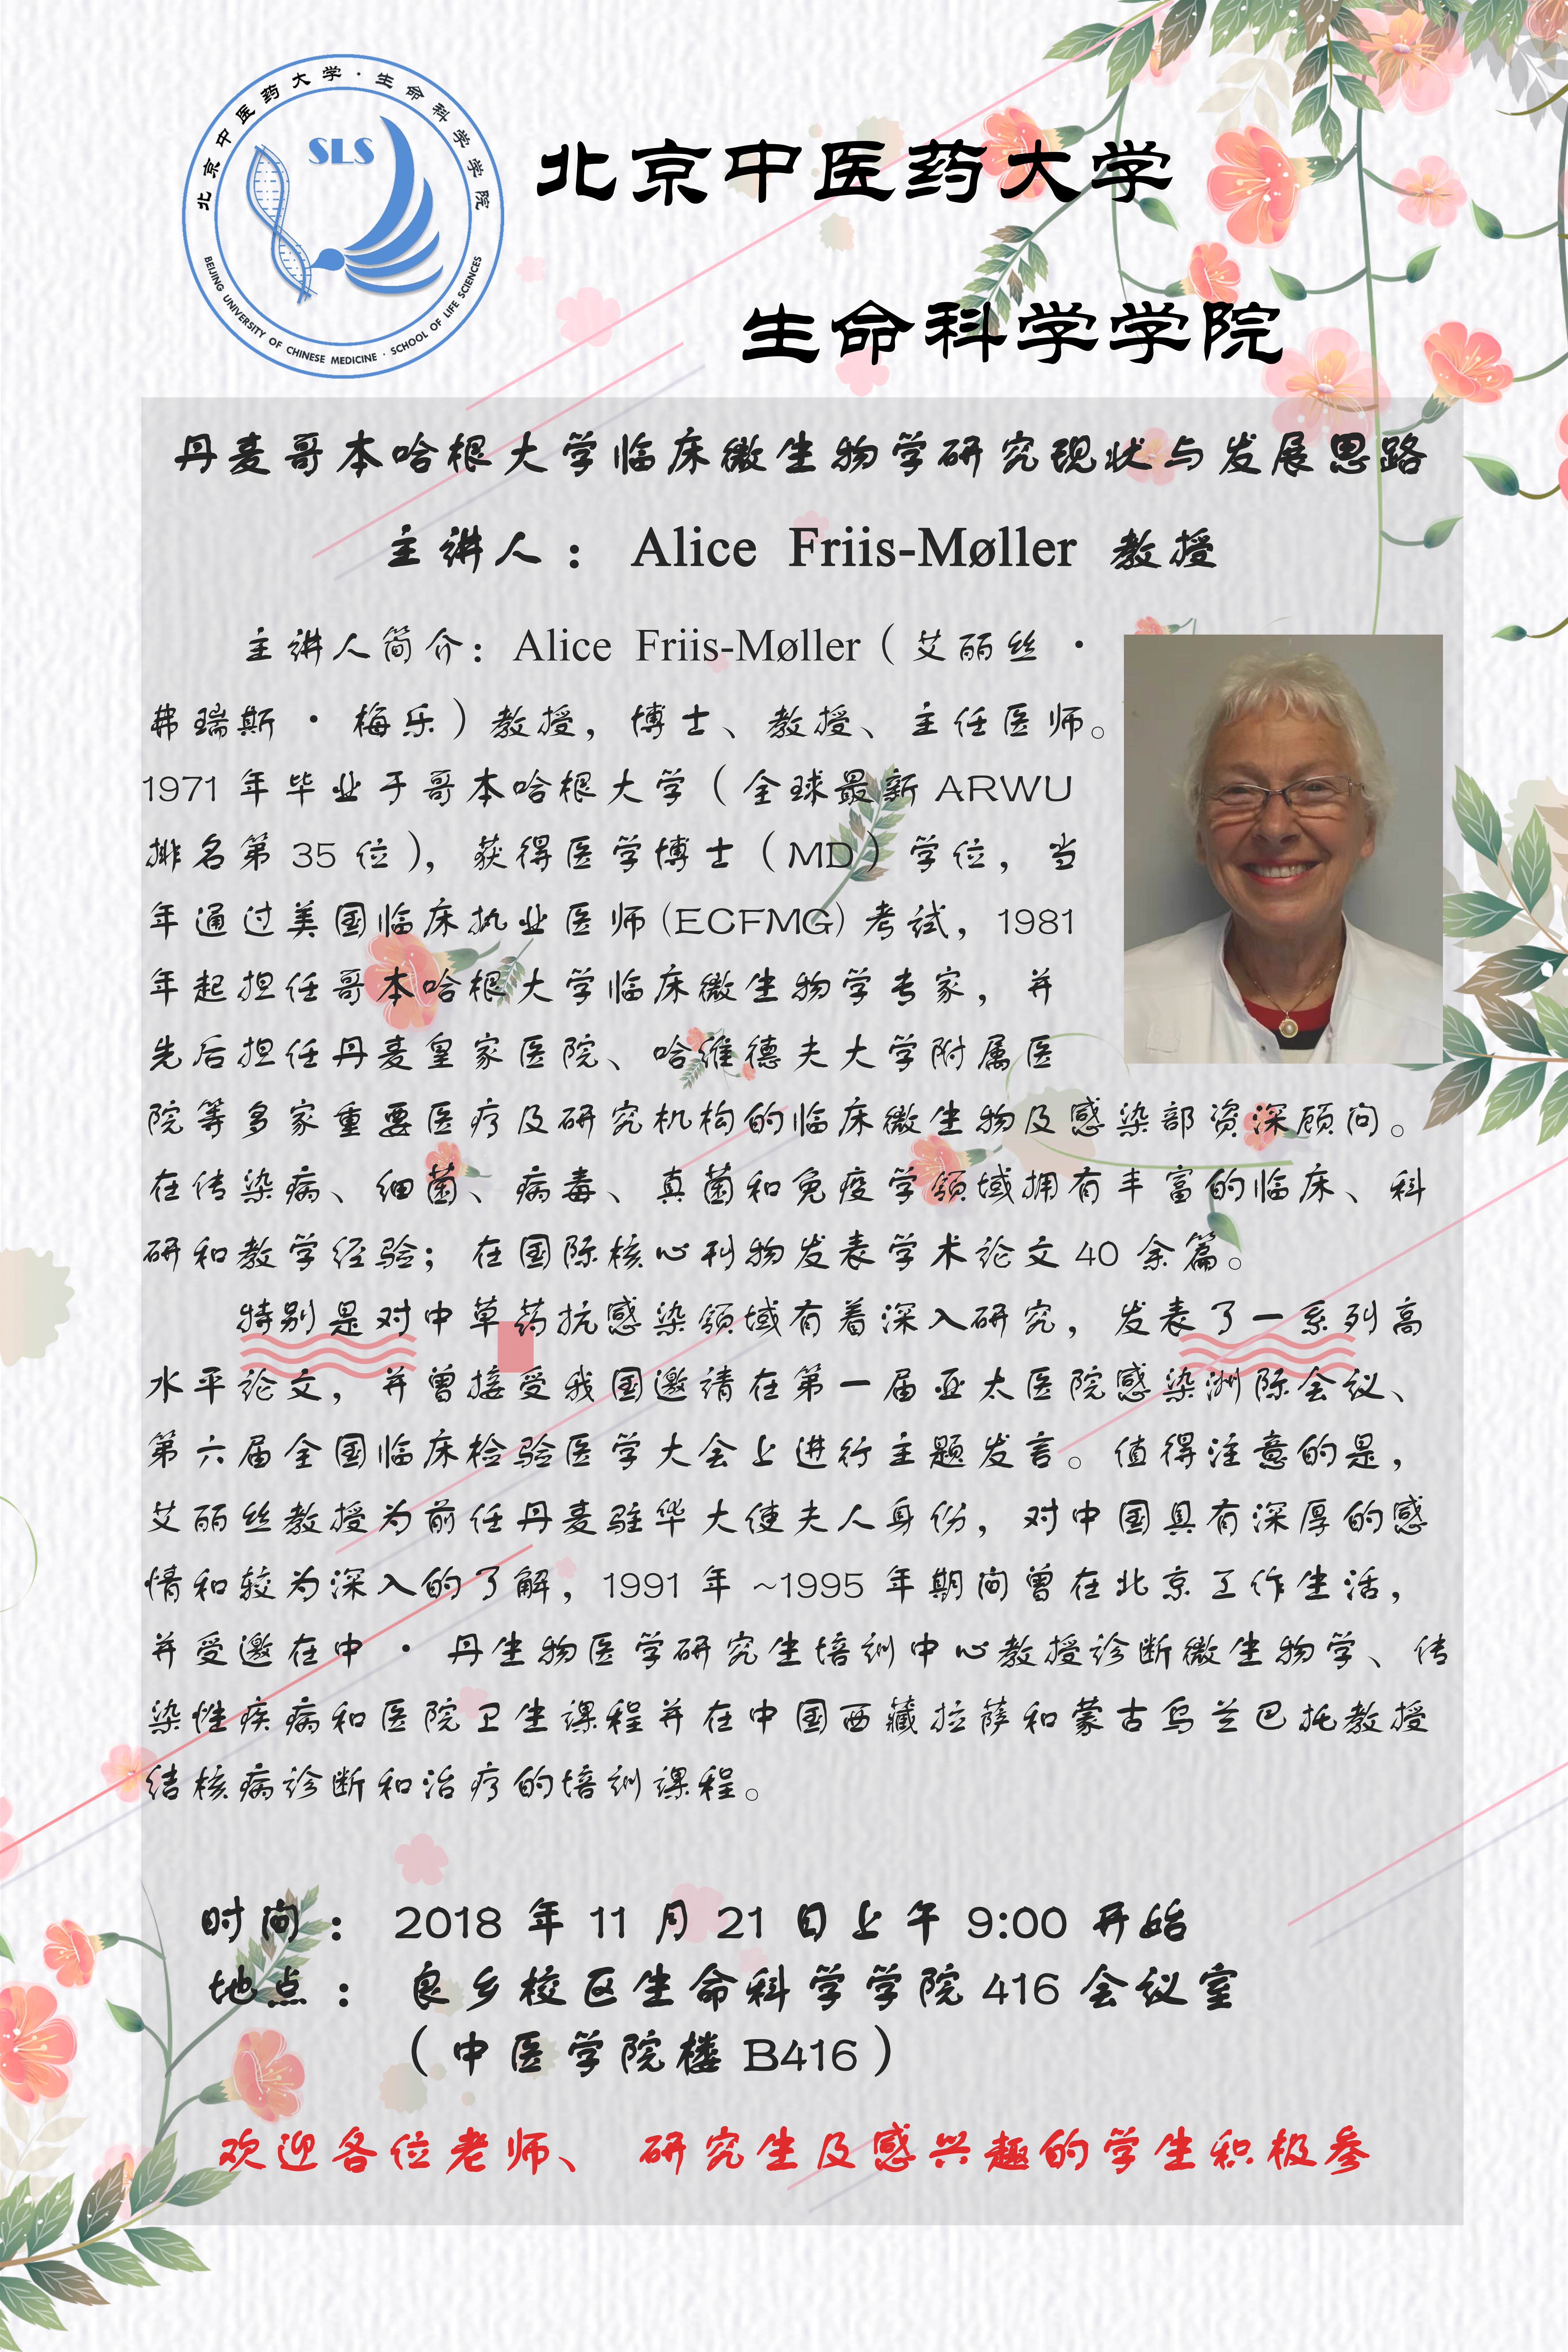 北京中医药大学·生命科学学院
SLS
BEIJING UNIVERSITY OF CHINESE MEDICINE · SCHOOL OF LIFE SCIENCES
北京中医药大学
生命科学学院
丹麦哥本哈根大学临床微生物学研究现状与发展思路
主讲人： Alice Friis-Møller 教授
主讲人简介：Alice Friis-Møller（艾丽丝·
弗瑞斯·梅乐）教授，博士、教授、主任医师。
1971 年毕业于哥本哈根大学（全球最新 ARWU
排名第 35 位），获得医学博士（MD）学位，当
年通过美国临床执业医师(ECFMG)考试，1981
年起担任哥本哈根大学临床微生物学专家，并
先后担任丹麦皇家医院、哈维德夫大学附属医
院等多家重要医疗及研究机构的临床微生物及感染部资深顾问。
在传染病、细菌、病毒、真菌和免疫学领域拥有丰富的临床、科
研和教学经验；在国际核心刊物发表学术论文 40 余篇。
特别是对中草药抗感染领域有着深入研究，发表了一系列高
水平论文，并曾接受我国邀请在第一届亚太医院感染洲际会议、
第六届全国临床检验医学大会上进行主题发言。值得注意的是，
艾丽丝教授为前任丹麦驻华大使夫人身份，对中国具有深厚的感
情和较为深入的了解，1991 年 ~1995 年期间曾在北京工作生活，
并受邀在中·丹生物医学研究生培训中心教授诊断微生物学、传
染性疾病和医院卫生课程并在中国西藏拉萨和蒙古乌兰巴托教授
结核病诊断和治疗的培训课程。
时间： 2018 年 11 月 21 日上午 9:00 开始
地点： 良乡校区生命科学学院 416 会议室
（中医学院楼 B416）
欢迎各位老师、 研究生及感兴趣的学生积极参